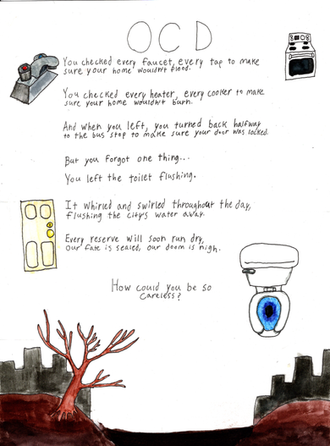 OCD
You checked every faucet, every tap to make
sure your home wouldn't flood.
You checked every heater, every cooker to make
sure your home wouldn't burn.
And when you left, you turned back halfway
to the bus stop to make sure your door was locked.
But you forgot one thing...
You left the toilet flushing.
It whirled and swirled throughout the day,
flushing the city's water away.
Every reserve will soon run dry,
Our fate is sealed, our doom is nigh.
How could you be so
careless?